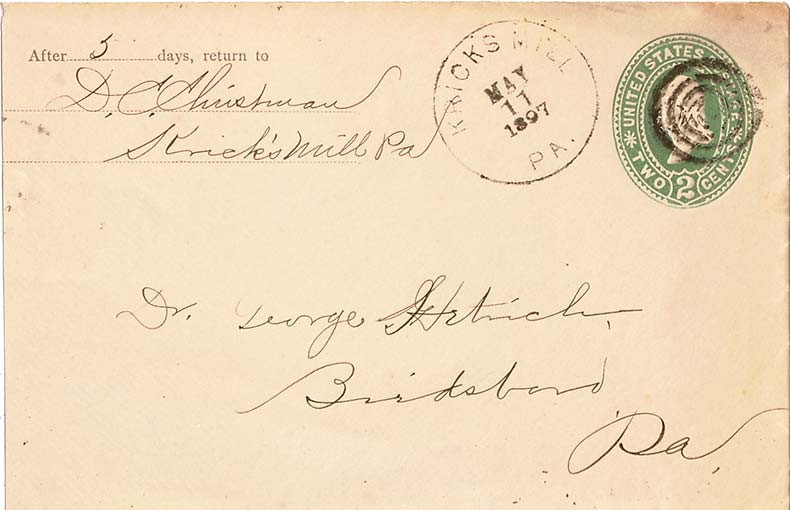 After 5 days, return to
D. C. Christman
Krick's Mill Pa
KRICKS MILL
MAY
11
1897
PA.
UNITED STATES
TWO 2 CENTS
Dr. George Hetrich,
Birdsboro
Pa,